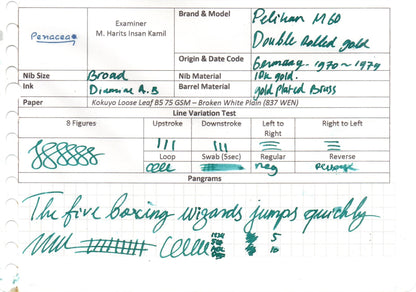 Penacea
Examiner
M. Harits Insan Kamil
Brand & Model
Pelikan M60
Double Rolled gold
Origin & Date Code
Germany. 1970 ~ 1979
Nib Size
Broad
Nib Material
10k gold.
Ink
Diamine A.B
Barrel Material
gold Plated Brass
Paper
Kokuyo Loose Leaf B5 75 GSM – Broken White Plain (837 WEN)
Line Variation Test
8 Figures
Upstroke
Downstroke
Left to Right
Right to Left
Loop
Swab (5sec)
Regular
Reverse
reg
reverse
Pangrams
The five boxing wizards jumps quickly
5
10